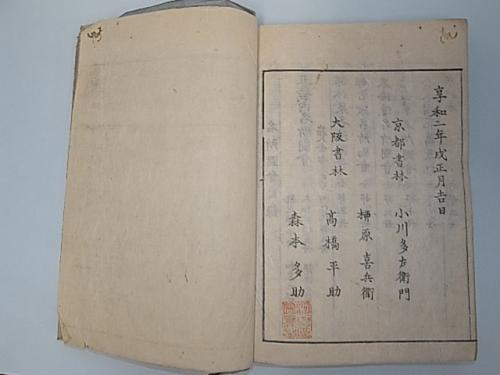 享和二年戌正月吉日
京都書林 小川多左衛門
栖原喜兵衛
大阪書林 高橋平助
森本多助